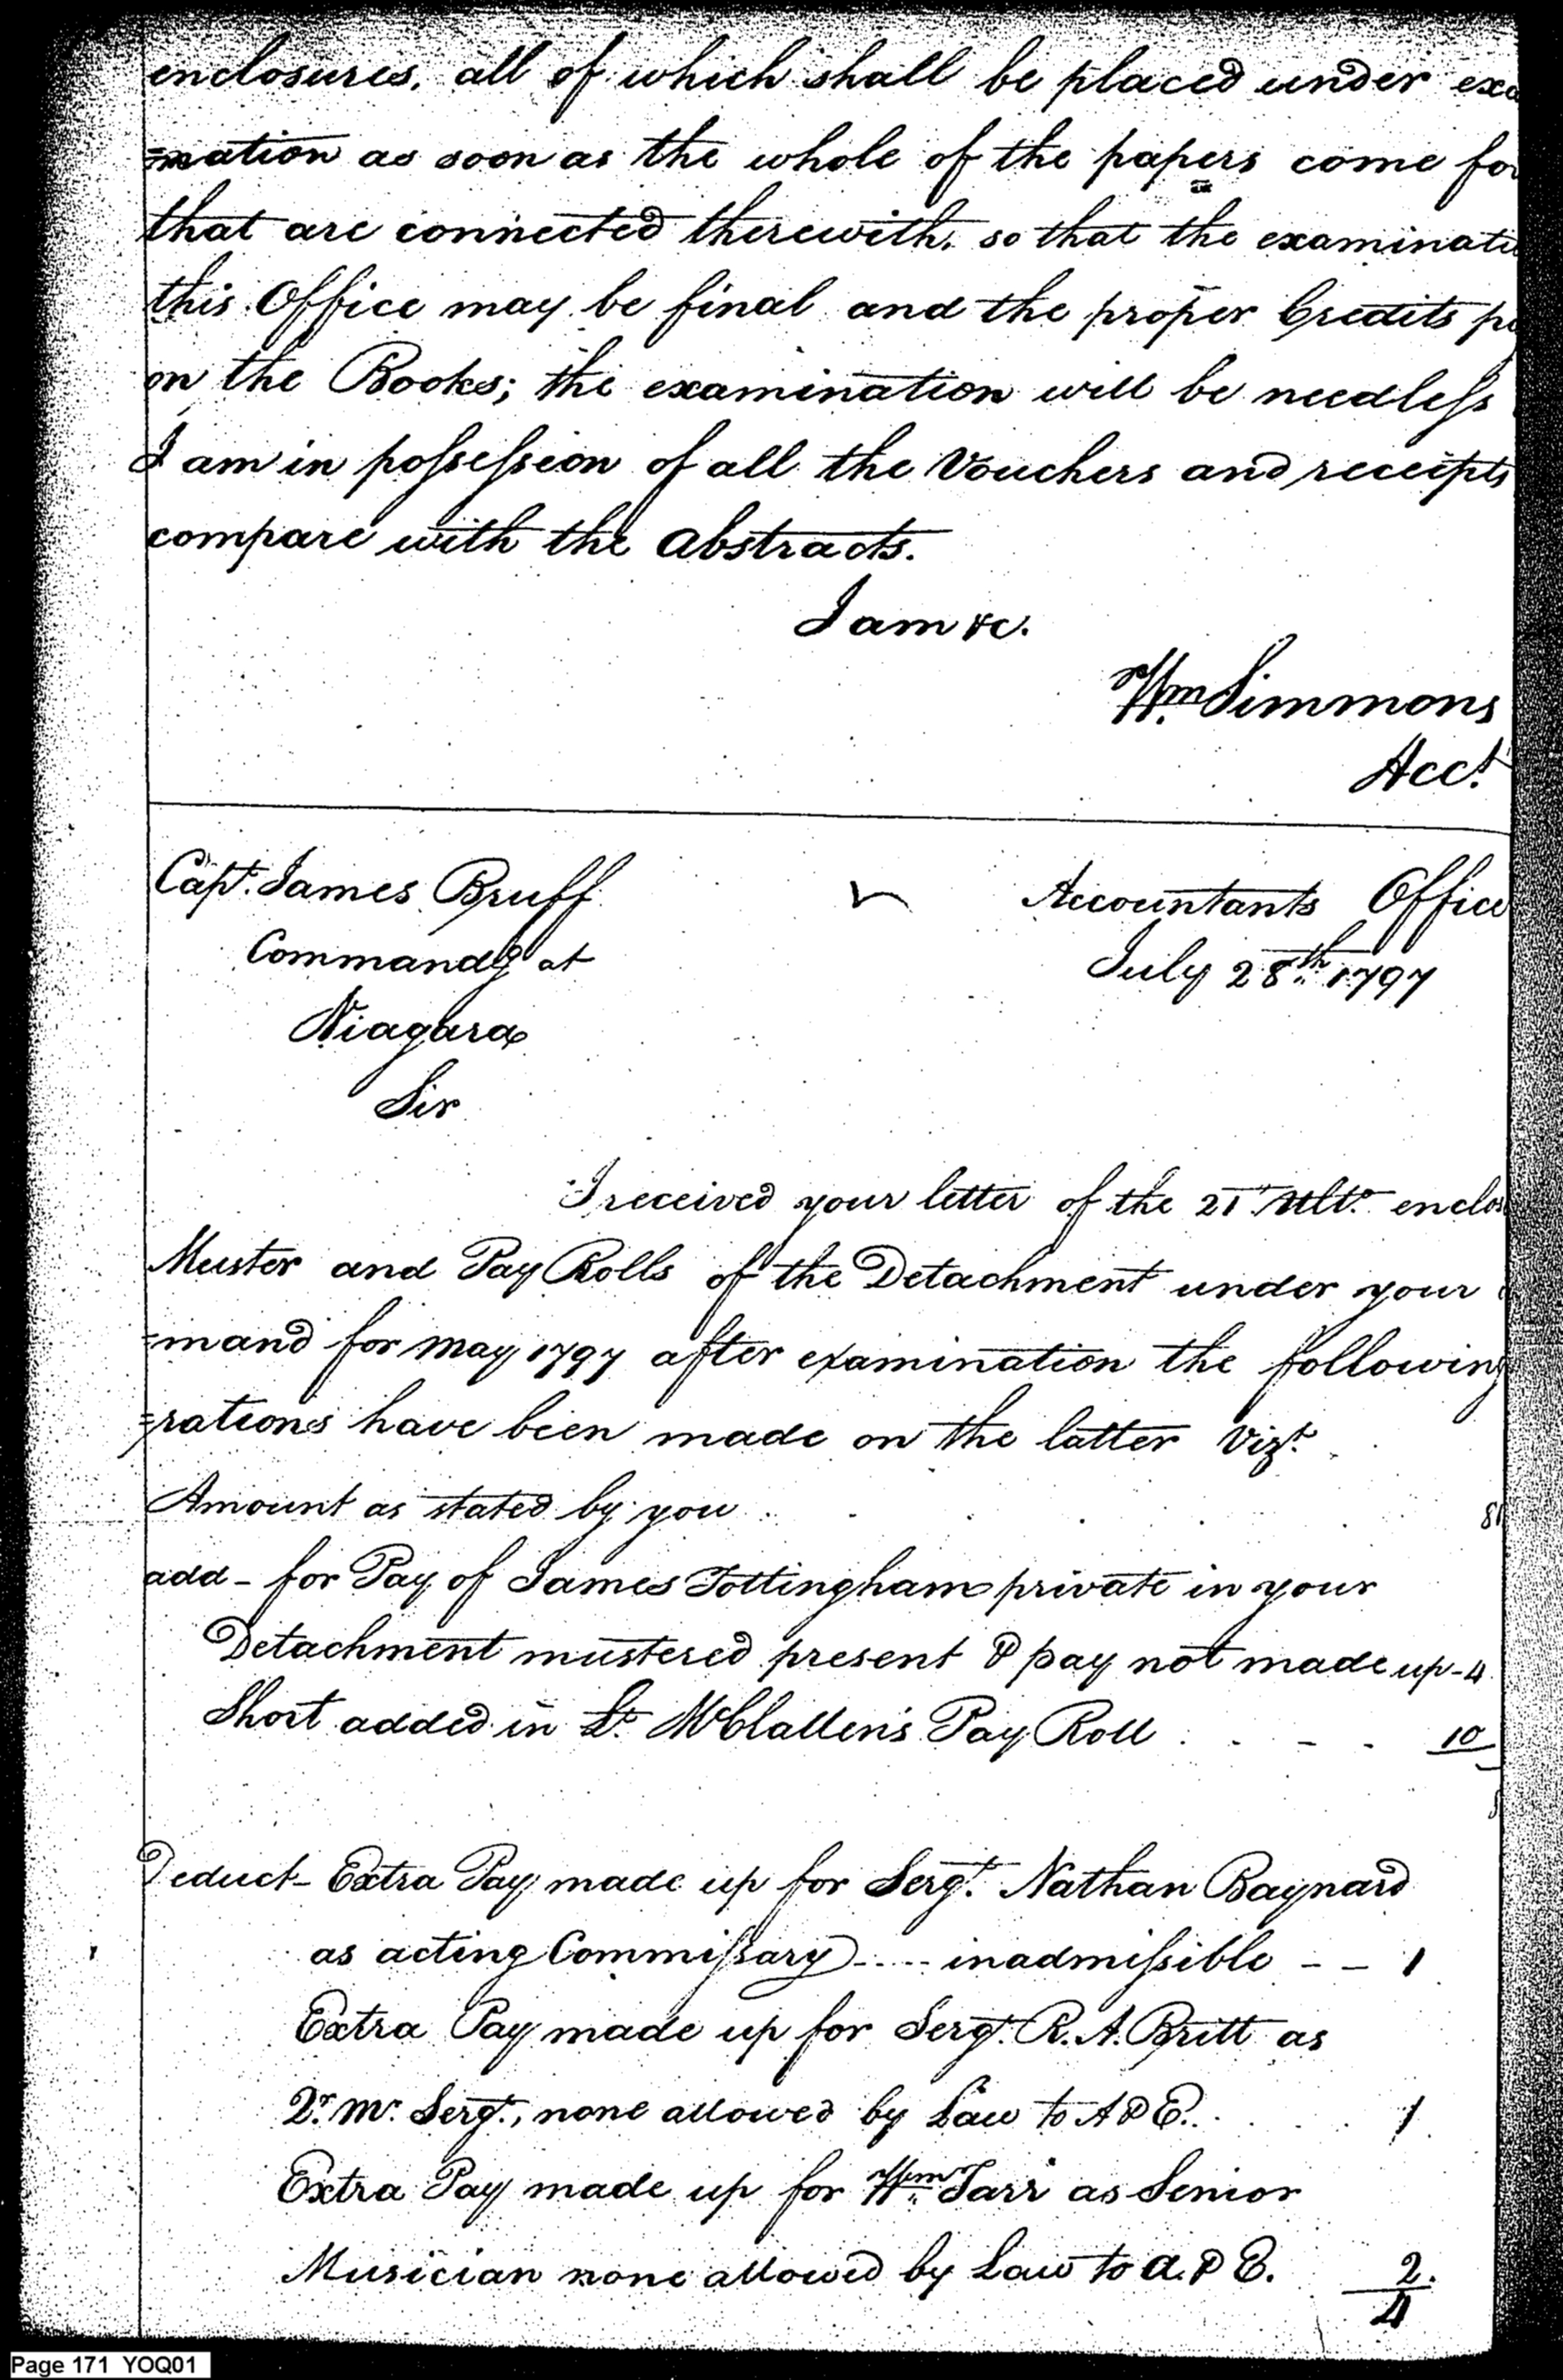 enclosures, all of which shall be placed under exa
=mation as soon as the whole of the papers come for
that are connected therewith, so that the examinati
this Office may be final and the proper Credits p
on the Books; the examination will be needless
I am in possession of all the Vouchers and receipts
compare with the Abstracts.
I am &c.
Wm Simmons
Acct
Capt. James Bruff
Commandg at
Niagara
Sir
Accountants Office
July 28th 1797
I received your letter of the 21st Ulto. enclos
Muster and Pay Rolls of the Detachment under your
=mand for May 1797 after examination the following
=rations have been made on the latter Vizt.
Amount as stated by you . . . . . 81
add - for Pay of James Tottingham private in your
Detachment mustered present & pay not made up - 4
Short added in Lt. McClallen's Pay Roll . . - . 10
Deduct - Extra Pay made up for Sergt. Nathan Baynard
as acting Commissary ..... inadmissible - - 1
Extra Pay made up for Sergt. R. A. Britt as
Qr. Mr. Sergt., none allowed by Law to A & E. . . . . 1
Extra Pay made up for Wm Tarr as Senior
Musician none allowed by Law to A. & E. 2.
4
Page 171 YOQ01